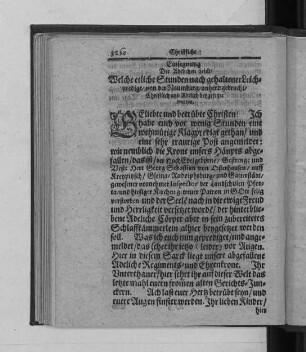 Christliche
Einsegnung
Der Adelichen Leich/
Welche etliche Stunden nach gehaltener Leich-
predigt/ von der Naumburg anhero gebracht/
Christlich und Adelich beygesetzt
worden.
GEliebte und betrübte Christen! Ich
habe euch vor wenig Stunden eine
wehmütige Klagpredigt gethan/ und
eine sehr traurige Post angemeldet:
wie neulich die Krone unsers Häupts abge-
fallen/ das ist/ der Hoch Edelgeborne/ Gestreng: und
Veste Herr Georg Sebastian von
gewesener vornehmer Inspector der
und hiesiger Kirchen Patron in GOtt selig
verstorben und der Seel/ nach in die ewige Freud
und Herrligkeit versetzt worden/ der hinterblie-
bene Adeliche Cörper aber in sein zubereitetes
Schlaffkämmerlein alhier beygesetzet werden
soll. Was ich euch nun geprediget/ und ange-
meldet/ das sehet ihr itzo/ leider/ vor Augen.
Hier in diesem Sarck liege unsere abgefallene
Adeliche Regiments- und Ehrenkrone. Ihr
Unterthanen/ hier sehet ihr auf dieser Welt das
letzte mahl euern frommen alten Gerichts-Jun-
ckern. Ach last euer Hertz betrübt seyn/ und
euere Augen finster werden. Ihr lieben Kinder/
hier